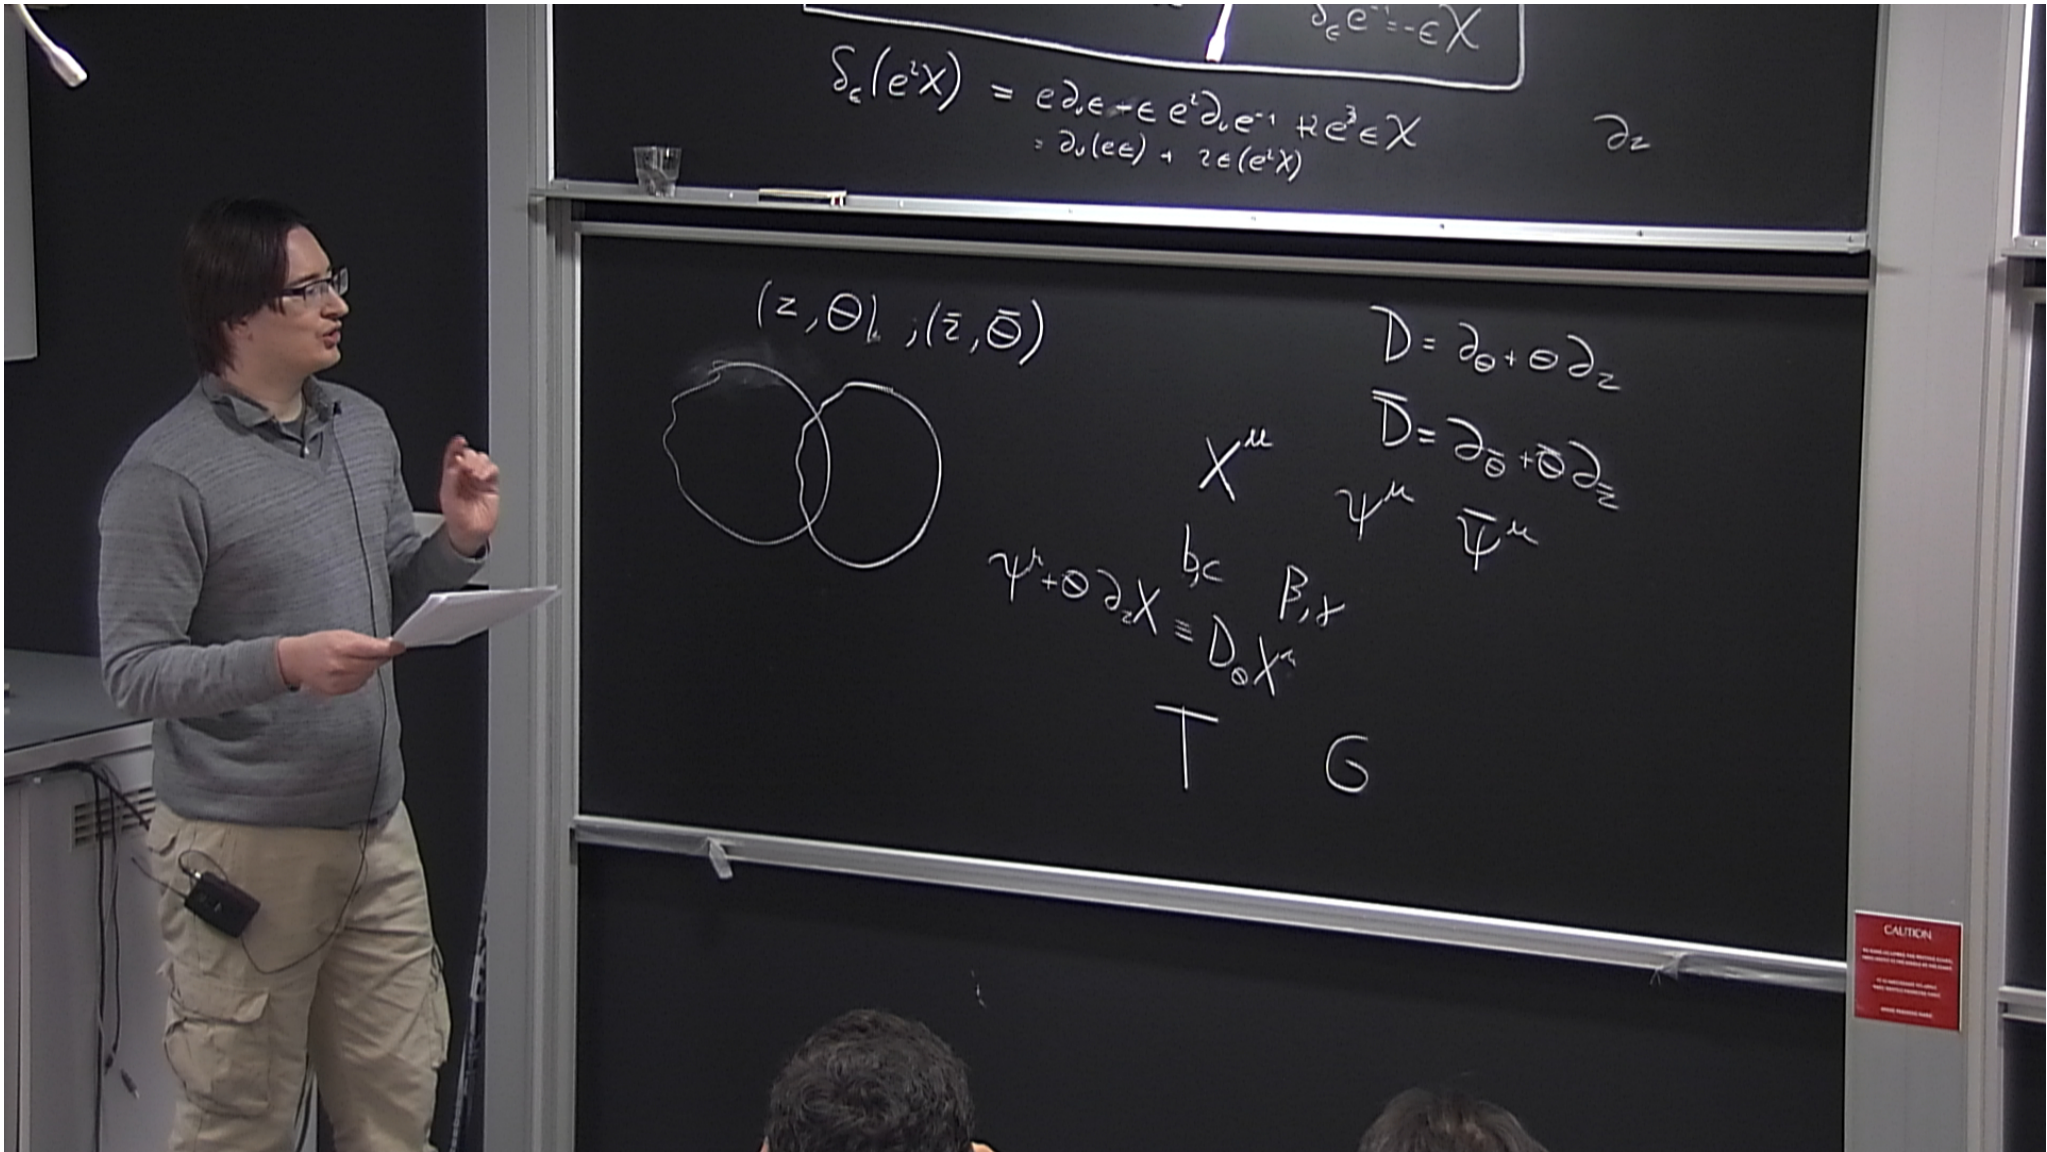 δ_ε e⁻¹ = -εχ
δ_ε(e²χ) = e∂_υε - ε e²∂_υe⁻¹ + 2e³εχ
= ∂_υ(eε) + 2ε(e²χ)
∂_z
(z, θ), (z̄, θ̄)
D = ∂_θ + θ∂_z
D̄ = ∂_θ̄ + θ̄∂_z̄
X^μ
ψ^μ ψ̄^μ
b,c β,γ
ψ^μ + θ∂_zX ≡ D_θX^μ
T G
CAUTION